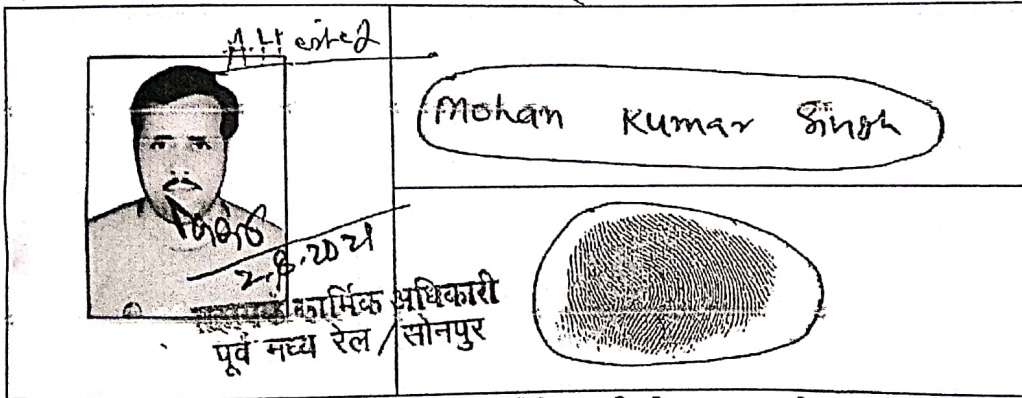 Attested
Mohan Kumar Singh
2.8.2021
कार्मिक अधिकारी
पूर्व मध्य रेल / सोनपुर